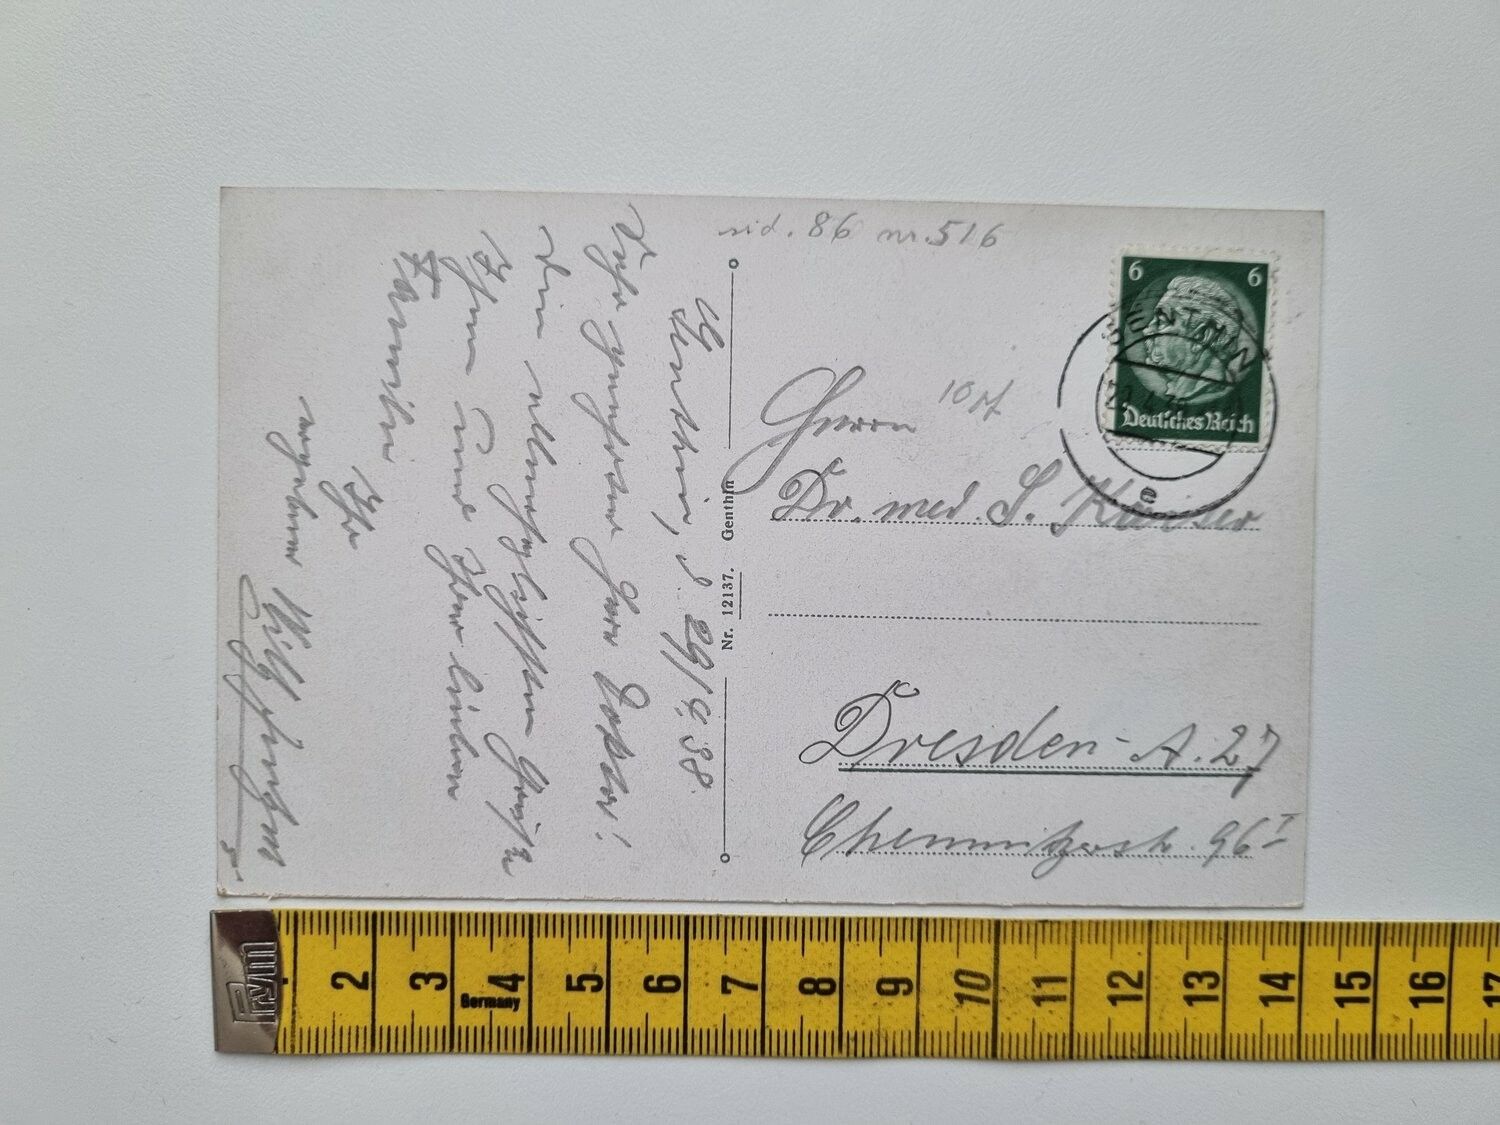 sid. 86 nr. 516
Genthin, d. 29/4. 38.
Sehr geehrter Herr Doktor!
Die allerherzlichsten Grüße
Ihnen und Ihrer lieben
Familie
Ihr
ergebener
Nr. 12137. Genthin
6 6
Deutsches Reich
GENTHIN
e
10 M
Herrn
Dr. med. S. Kaiser
Dresden-A. 27
Chemnitzerstr. 96 I
Prym
Germany
2 3 4 5 6 7 8 9 10 11 12 13 14 15 16 17